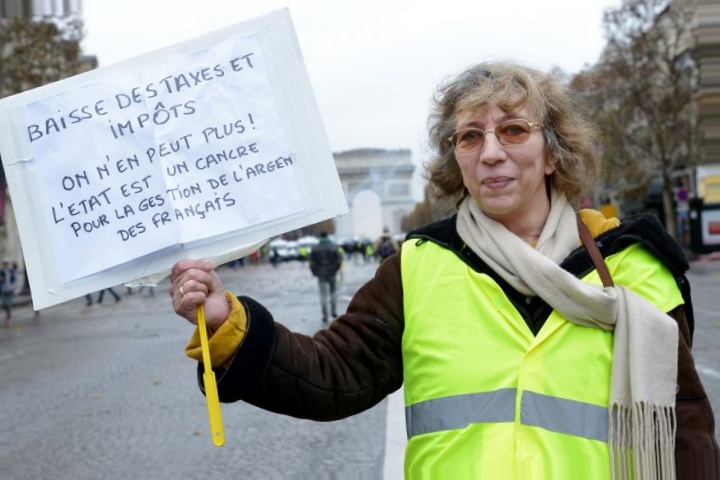 BAISSE DES TAXES ET
IMPÔTS
ON N'EN PEUT PLUS!
L'ETAT EST UN CANCRE
POUR LA GESTION DE L'ARGENT
DES FRANÇAIS